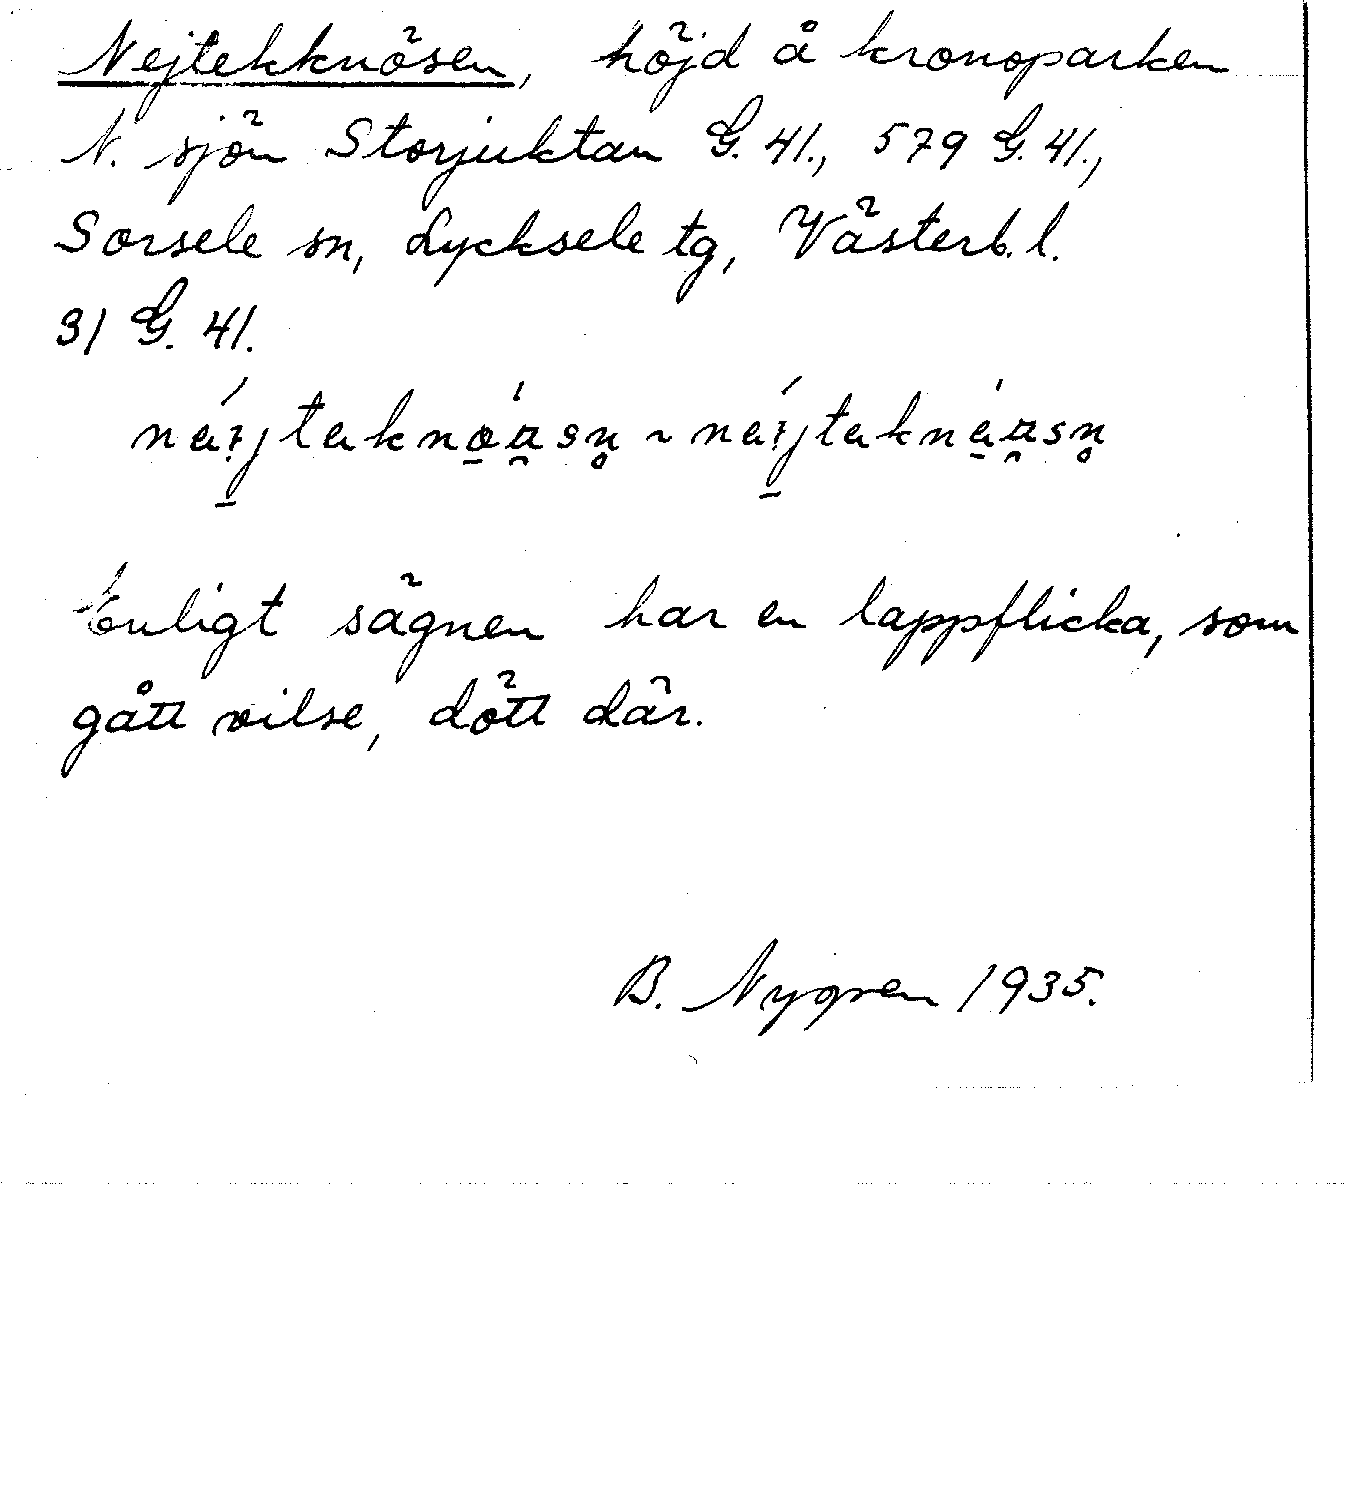 Nejtekknösen, höjd å kronoparken
N. sjön Storjuktan G. 41., 579 G. 41.,
Sorsele sn, Lycksele tg, Västerb. l.
31 G. 41.
Enligt sägnen har en lappflicka, som
gått vilse, dött där.
B. Nygren 1935.